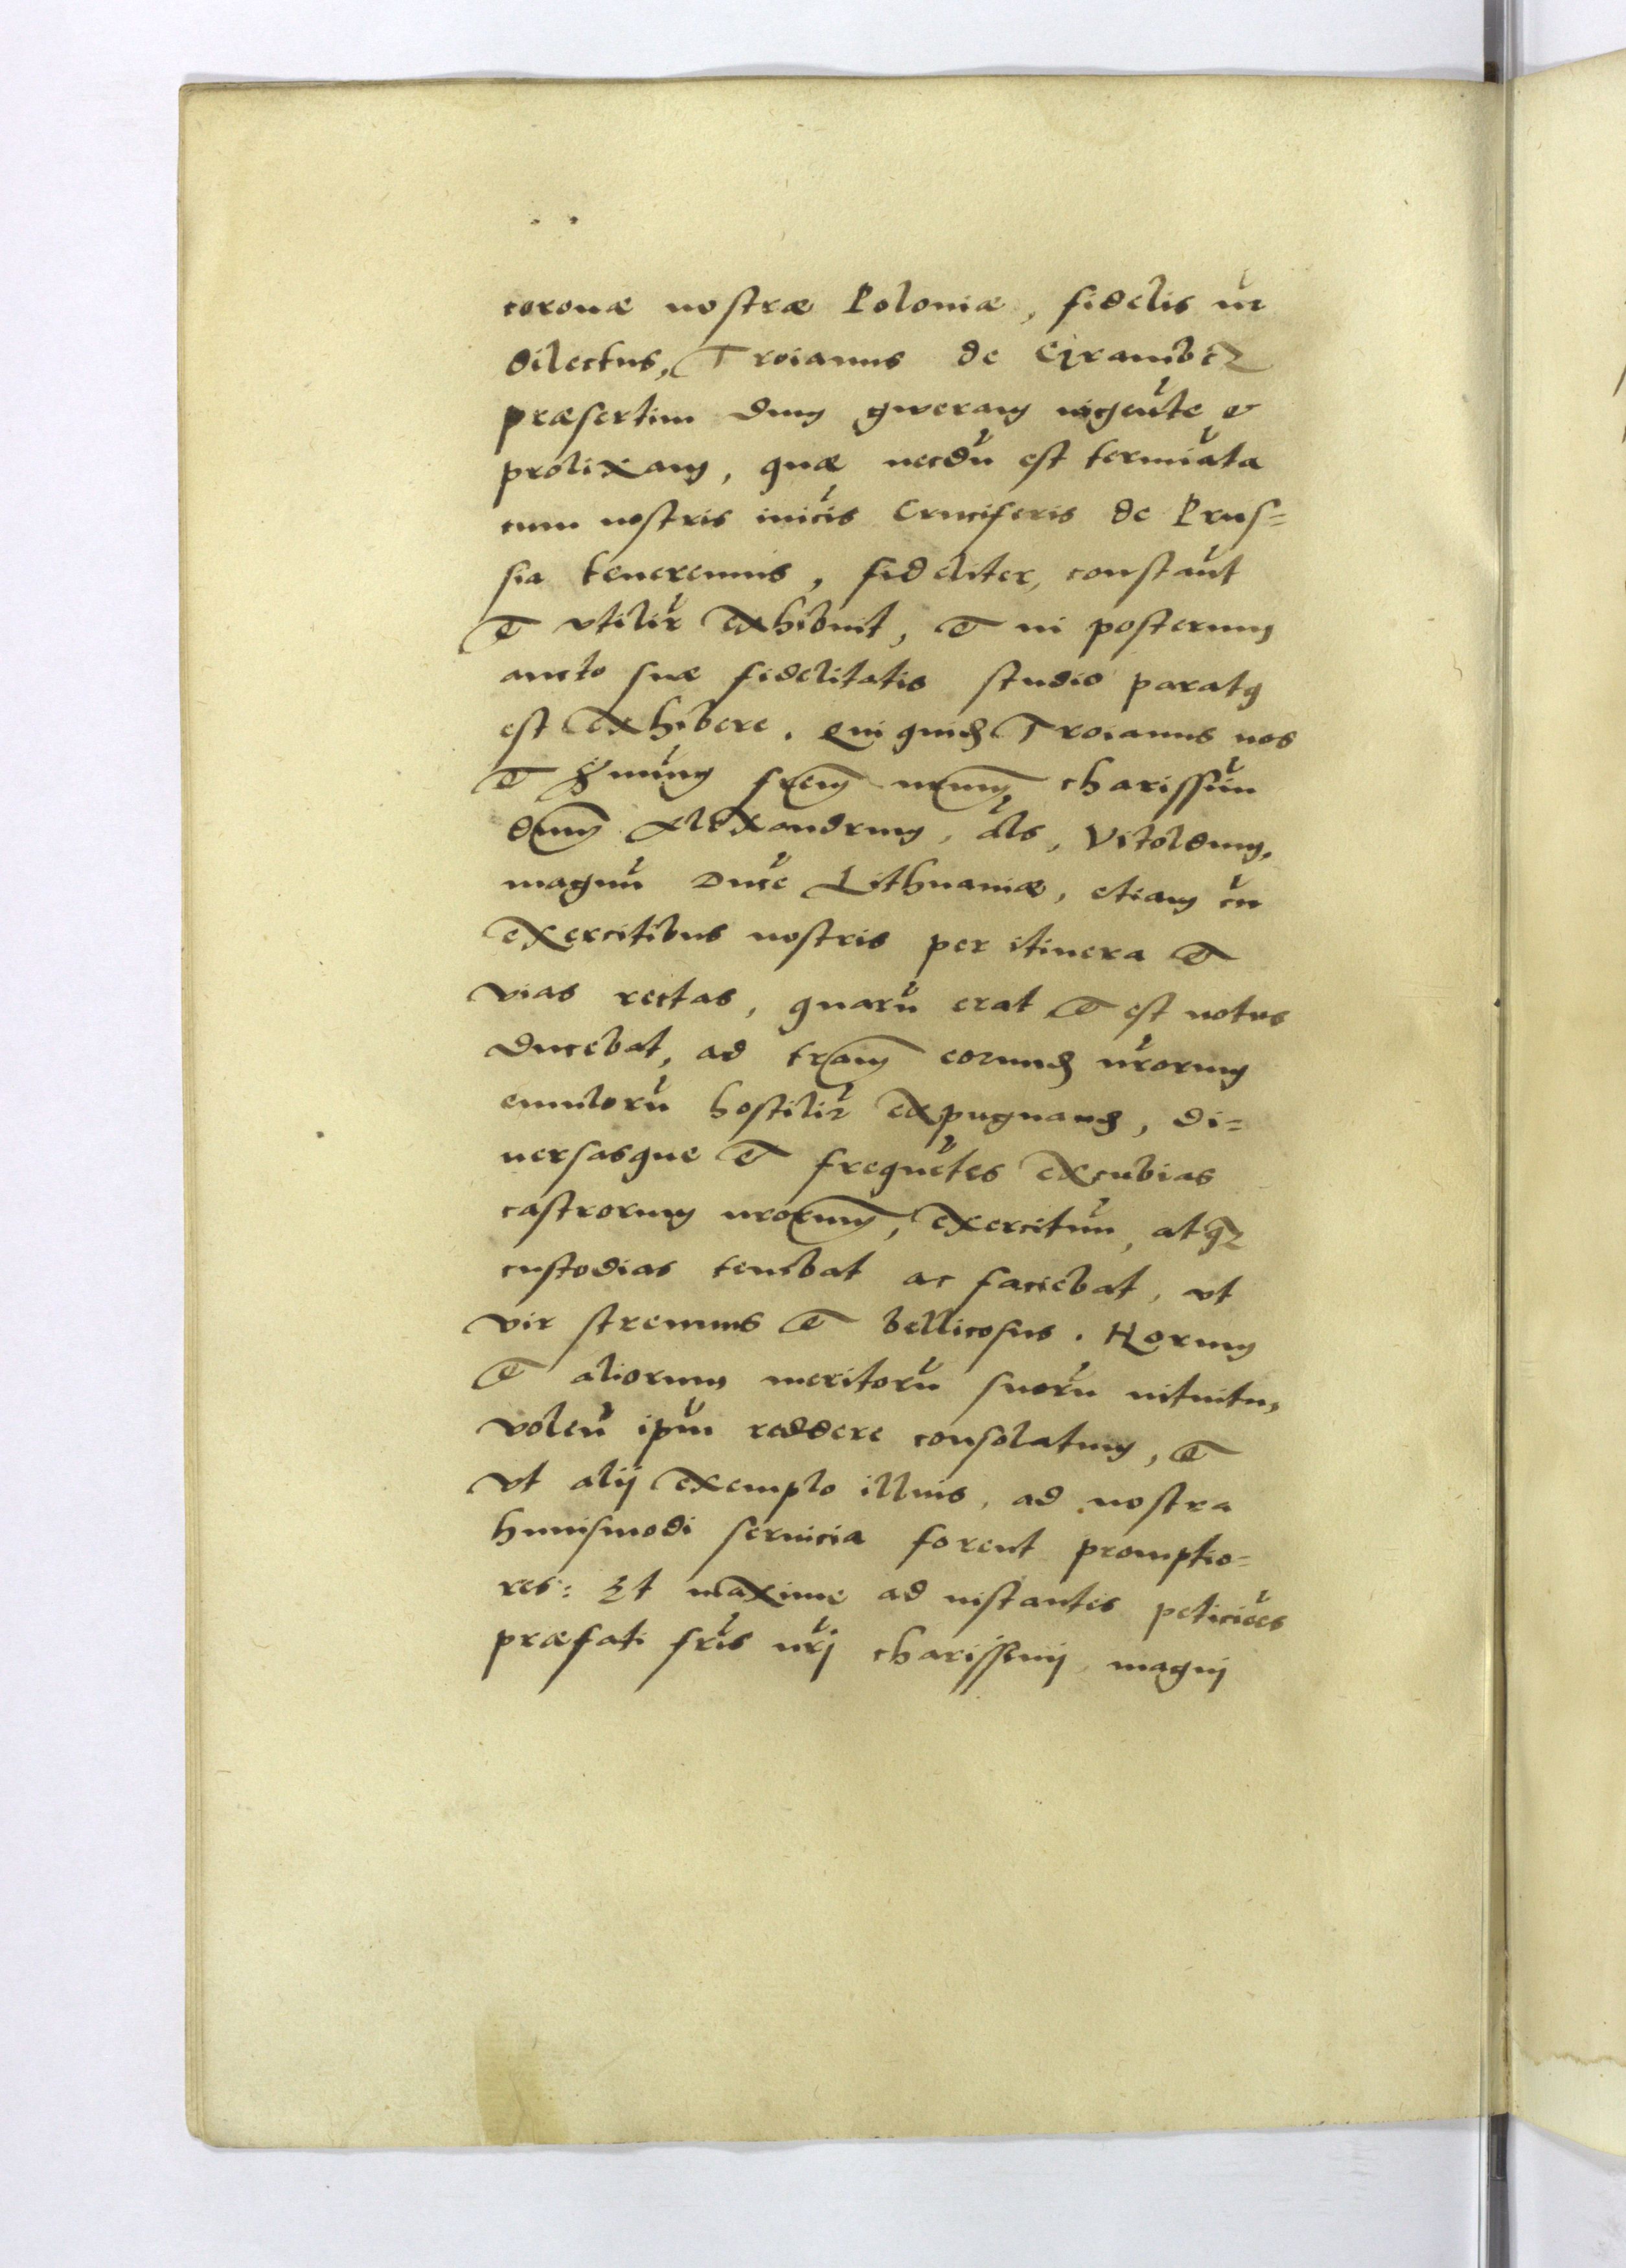 coronæ nostræ Poloniæ, fidelis nr̃
dilectus, Troianus de
præsertim dum gweram ingẽte et
prolixam, quæ necdũ est termĩata
cum nostris inĩcis Cruciferis de Prus=
sia teneremus, fideliter, constãt
et vtilir̃ exhibuit, et in posterum
aucto suæ fidelitatis studio paratꝫ
est exhibere. Qui quidẽ Troianus nos
et frẽm nrũm charissĩm
dnũm Alexandrum, als, Vitoldum,
magnũ Ducẽ Lithuaniæ, etiam cũ
exercitibus nostris per itinera et
vias rectas, quarũ erat et est notus
ducebat, ad trãm eorundẽ nr̃orum
emulorũ hostilir̃ expugnand, di=
uersasque et frequẽtes excubias
castrorum nrorũm, exercitũm, atqꝫ
custodias tenebat ac faciebat, vt
vir strenuus et bellicosus. Horum
et aliorum meritorũ suorũ intuitu,
volen̄ ipm̃ reddere consolatum, et
vt alij exemplo illius, ad nostra
huiusmodi seruicia forent promptio=
res: Et maxime ad instantes peticiões
præfati fris̃ nrj̃ charissimj, magnj